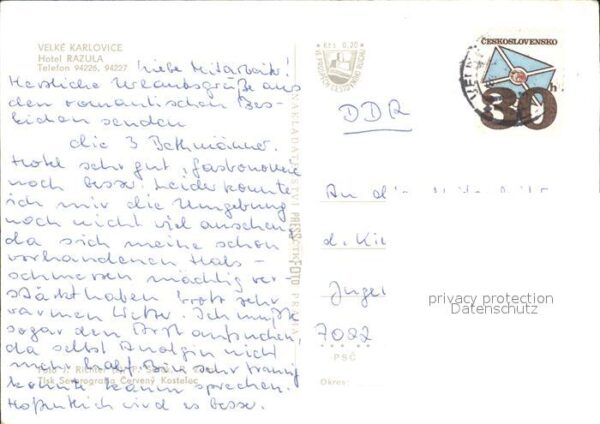 VELKÉ KARLOVICE
Hotel RAZULA
Telefon 94226, 94227
Liebe Mitarbeiter!
Herzliche Urlaubsgrüße aus
den romantischen Bes-
kiden senden
die 3 Bethmänner.
Hotel sehr gut, Gastronomie
noch besser. Leider konnte
ich mir die Umgebung
noch nicht viel anschen,
da sich meine schon
vorhandenen Hals-
schmerzen mächtig ver-
stärkt haben trotz sehr
warmen Wetter. Ich mußte
sogar den Arzt aufsuchen,
da selbst Analgin nicht
mehr half. Bin sehr traurig
konnte kaum sprechen.
Hoffentlich wird es besser.
Richter
Tisk Severografia Červený Kostelec
NAKLADATELSTVÍ PRESSFOTO PRAHA
Kčs 0,20
ČESKOSLOVENSKO
30 h
DDR
An die
d. Ki
Junge
7022
PSČ
Okres:
privacy protection
Datenschutz